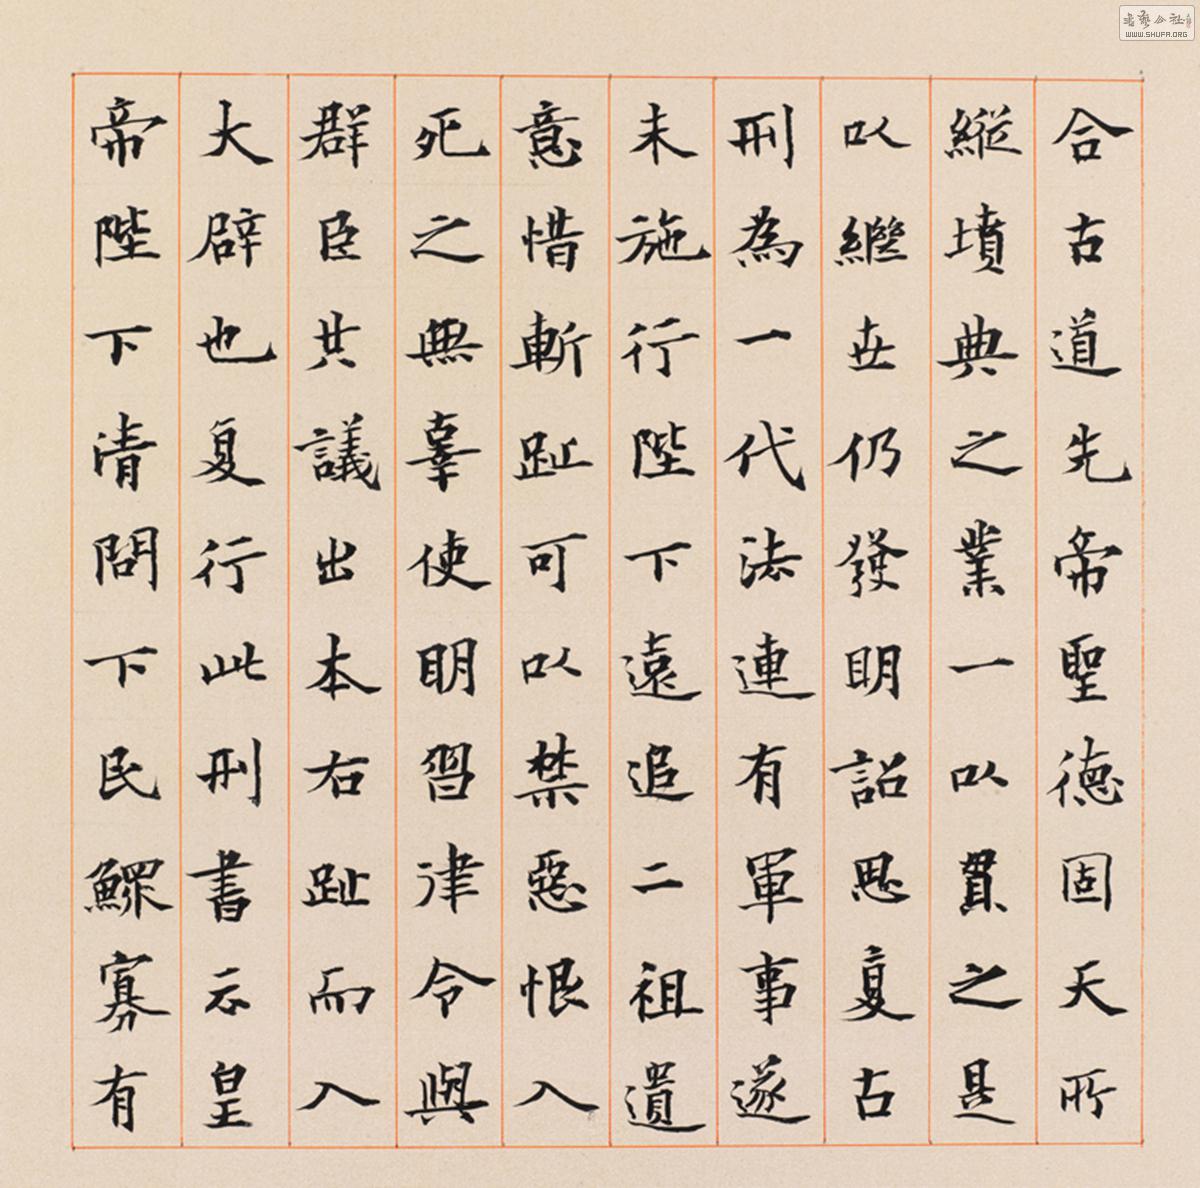 合古道先帝聖德固天所
縱墳典之業一以貫之是
以繼世仍發明詔思复古
刑為一代法連有軍事遂
未施行陛下遠追二祖遺
意惜斬趾可以禁惡恨入
死之無辜使明習律令與
群臣共議出本右趾而入
大辟也复行此刑書云皇
帝陛下清問下民鰥寡有
WWW.SHUFA.ORG